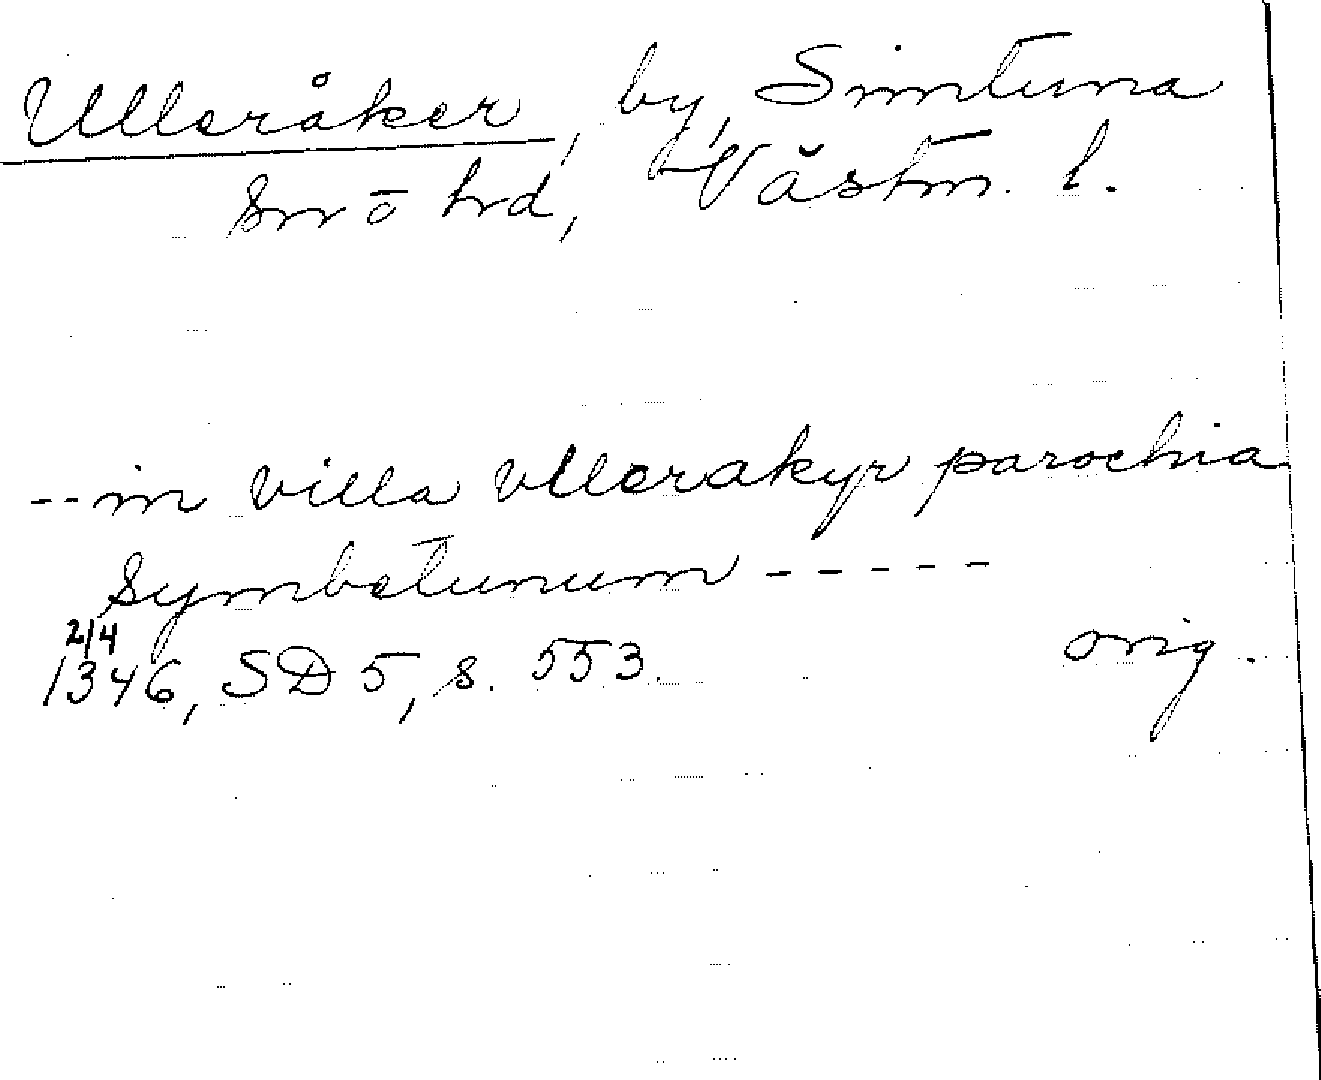 Ulleråker, by, Simtuna
sn o hrd, Västm. l.
-- in villa vllerakyr parochia
Symbotunum -----
2/4
1346, SD 5, s. 553. orig.